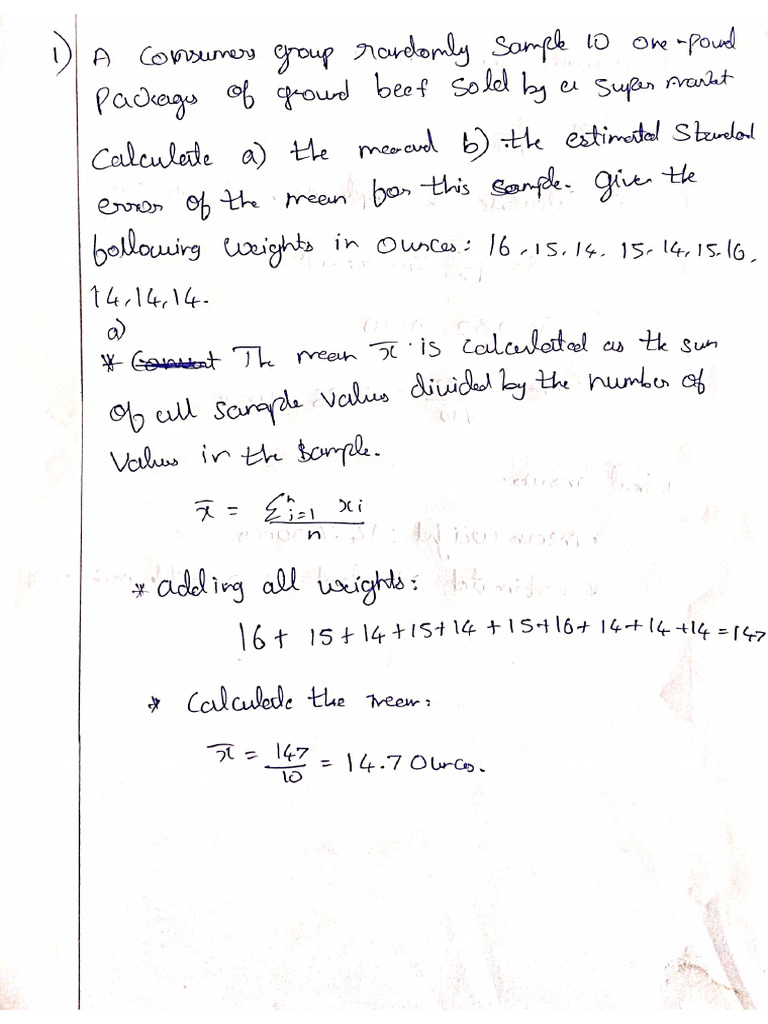 1) A Consumers group randomly Sample 10 one-pound
Packages of ground beef sold by a super market
Calculate a) the mean and b) the estimated Standard
error of the mean for this sample. Given the
following weights in Ounces: 16, 15, 14, 15, 14, 15, 16,
14, 14, 14.
a)
* The mean x̄ is calculated as the sum
of all sample values divided by the number of
values in the sample.
x̄ = Σⁿᵢ₌₁ xi
n
* adding all weights:
16 + 15 + 14 + 15 + 14 + 15 + 16 + 14 + 14 + 14 = 147
* Calculate the mean:
x̄ = 147/10 = 14.7 Ounces.